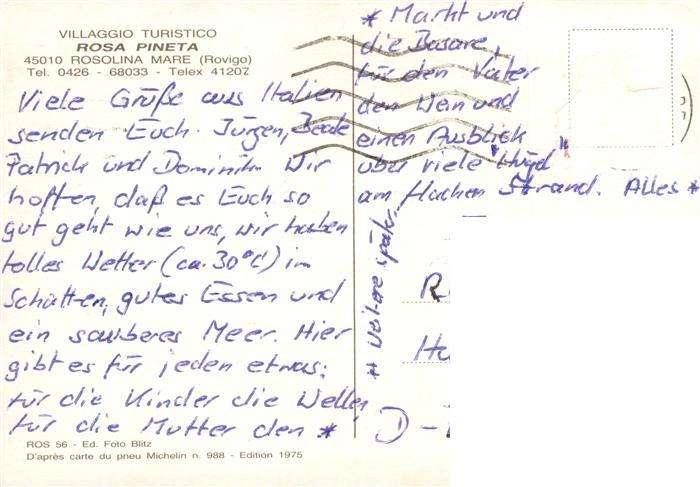 VILLAGGIO TURISTICO
ROSA PINETA
45010 ROSOLINA MARE (Rovigo)
Tel. 0426 - 68033 - Telex 41207
Viele Grüße aus Italien
senden Euch Jürgen, Beate
Patrick und Dominik. Wir
hoffen, daß es Euch so
gut geht wie uns, wir haben
tolles Wetter (ca. 30°C) im
Schatten, gutes Essen und
ein sauberes Meer. Hier
gibt es für jeden etwas:
für die Kinder die Wellen
für die Mutter den *
ROS 56 - Ed. Foto Blitz
D'après carte du pneu Michelin n. 988 - Edition 1975
* Markt und
die Basare,
für den Vater
den Wein und
einen Ausblick
über viele "Hügel"
am flachen Strand. Alles *
** Weitere später.
R
Hu
D -